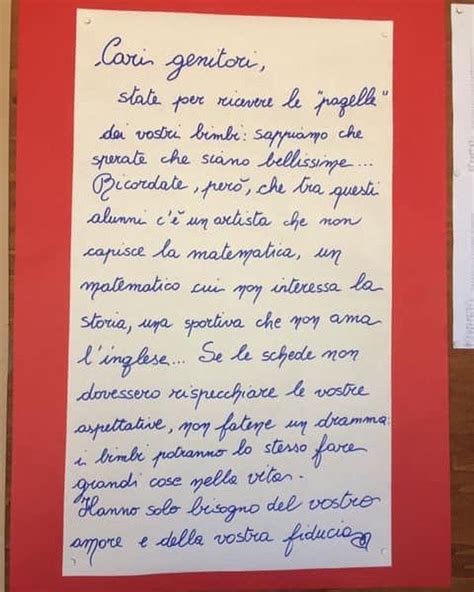 Cari genitori,
state per ricevere le "pagelle"
dei vostri bimbi: sappiamo che
sperate che siano bellissime...
Ricordate, però, che tra questi
alunni c'è un artista che non
capisce la matematica, un
matematico cui non interessa la
storia, una sportiva che non ama
l'inglese... Se le schede non
dovessero rispecchiare le vostre
aspettative, non fatene un dramma:
i bimbi potranno lo stesso fare
grandi cose nella vita.
Hanno solo bisogno del vostro
amore e della vostra fiducia